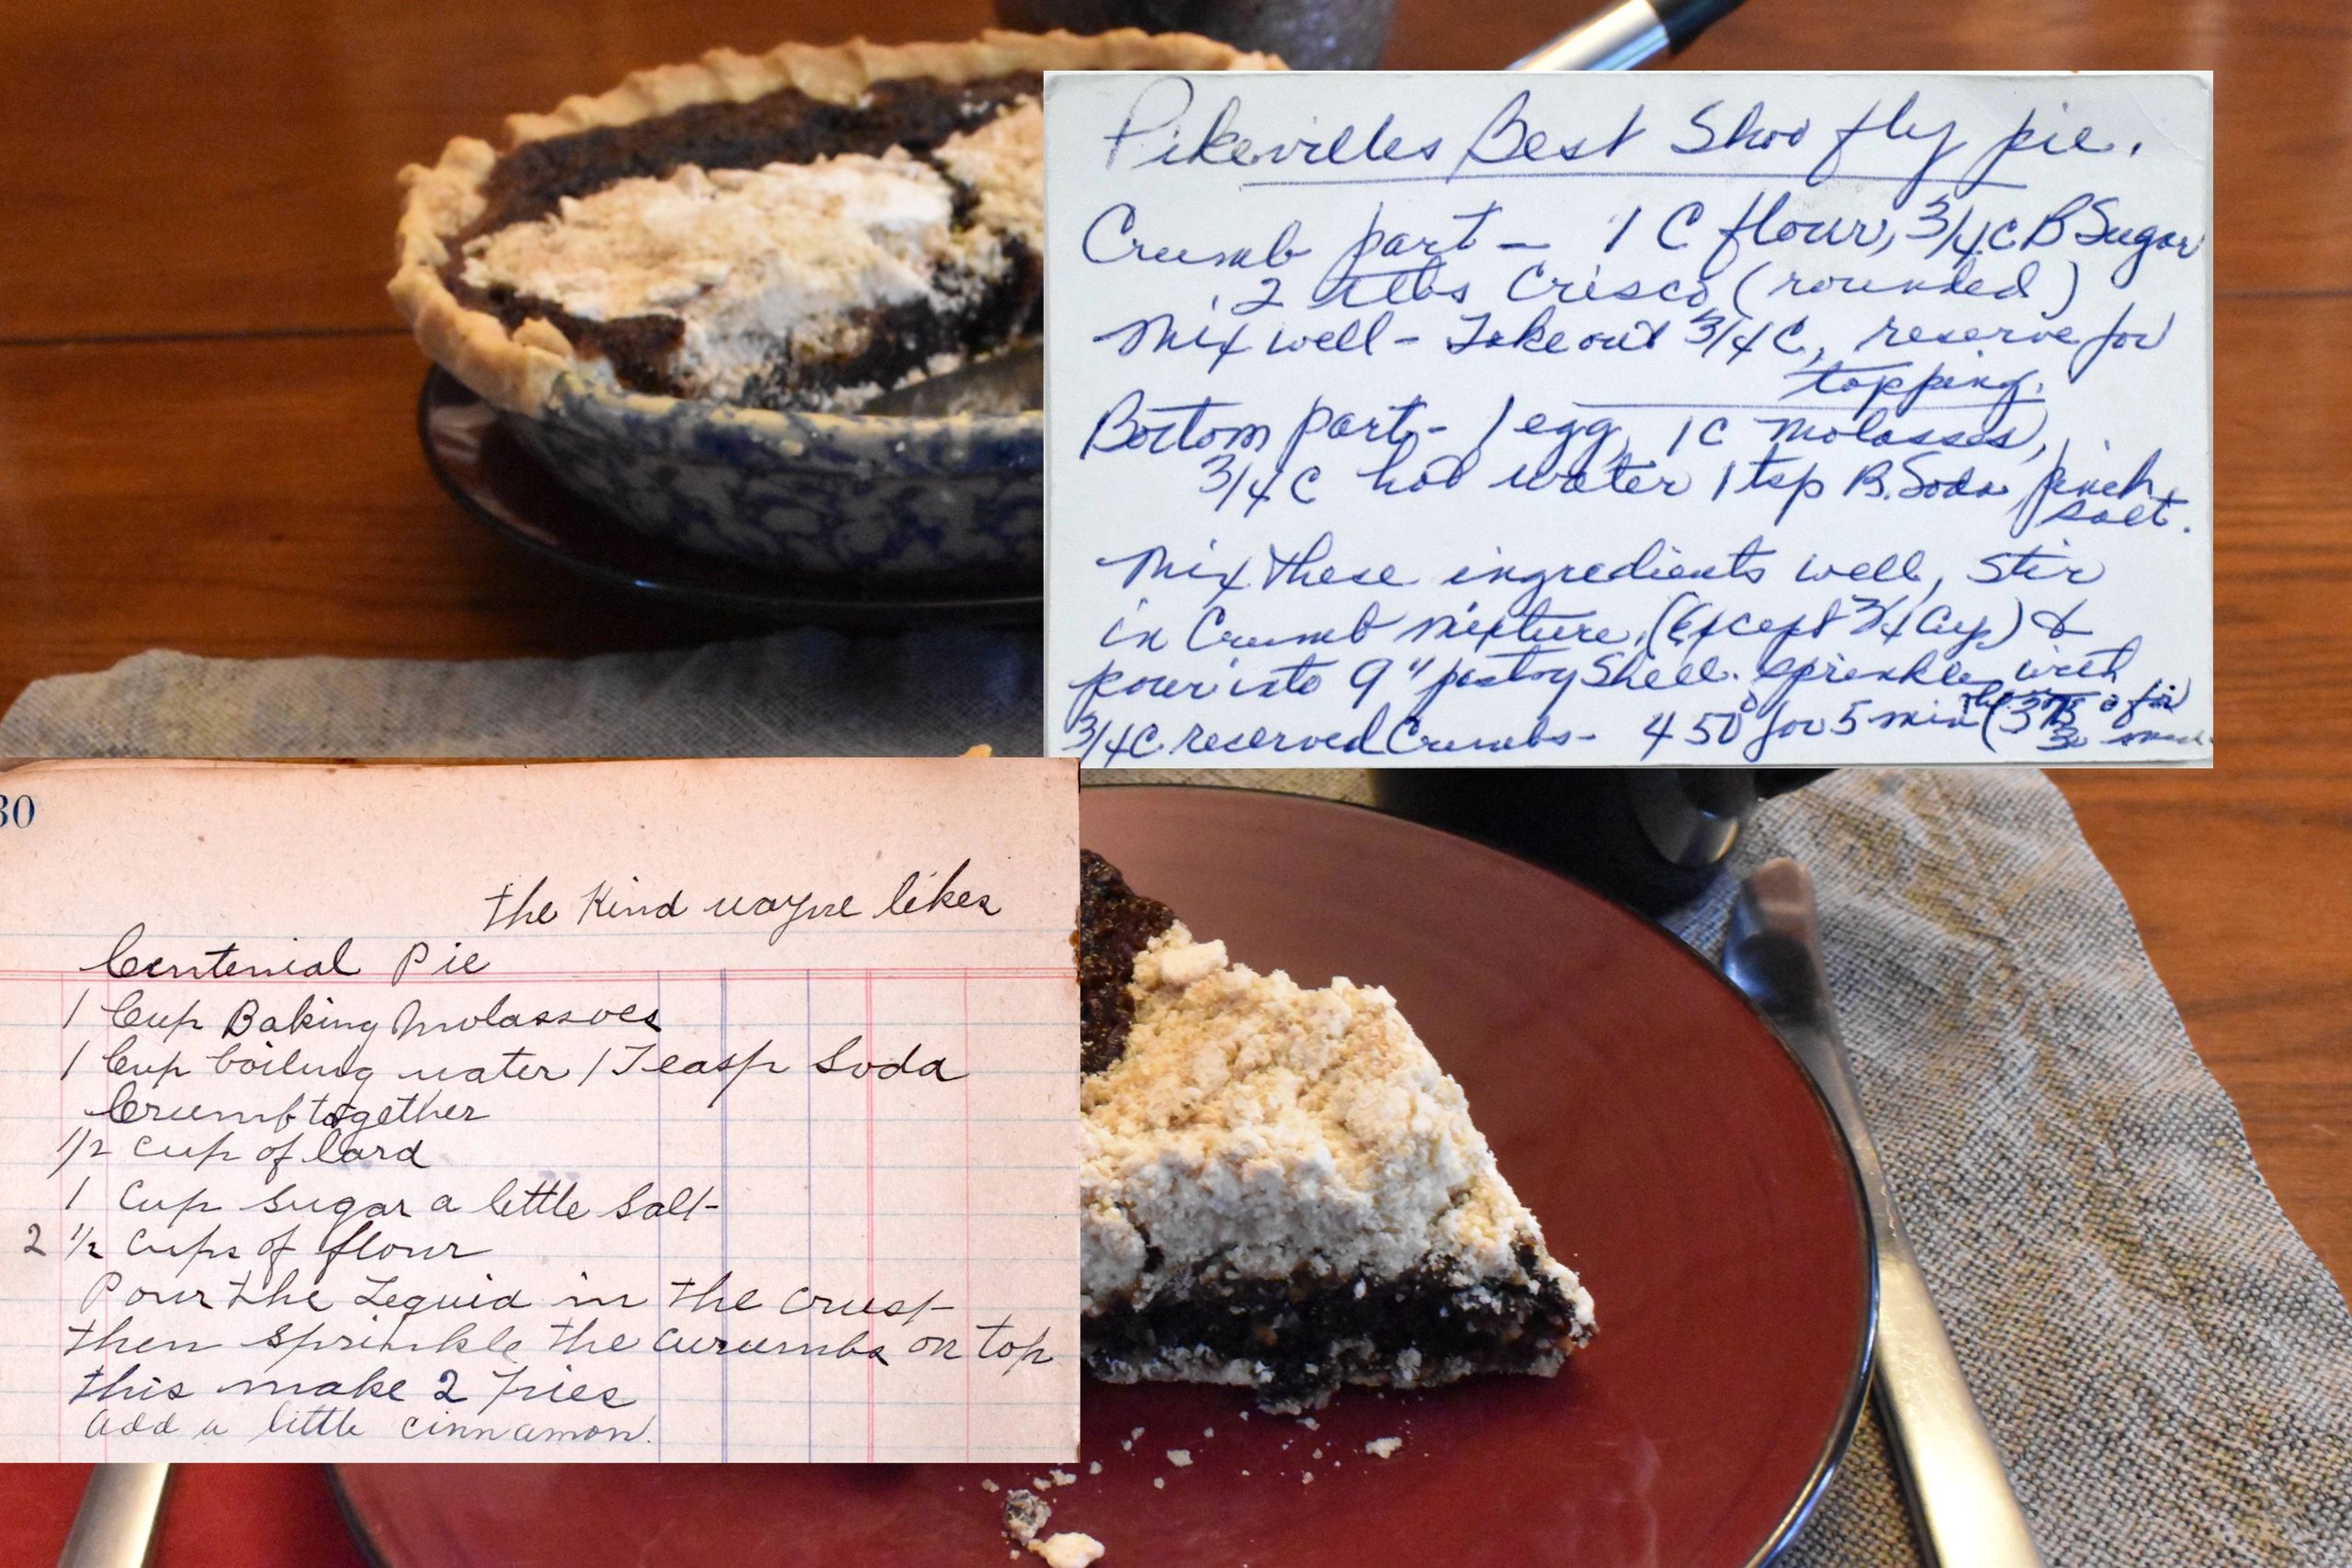 Pikevilles Best Shoo fly pie.
Crumb part - 1 C flour, 3/4 C B Sugar
, 2 tlbs Crisco (rounded)
Mix well - Take out 3/4 C, reserve for
topping.
Bottom part - 1 egg, 1 C molasses,
3/4 C hot water 1 tsp B. Soda pinch
salt.
Mix these ingredients well, stir
in Crumb mixture, (Except 3/4 Cup) &
pour into 9" pastry Shell. sprinkle with
3/4 C. reserved Crumbs - 450° for 5 min
30
the Kind wayne likes
Centenial Pie
1 Cup Baking Molassoes
1 Cup boiling water 1 Teasp Soda
Crumb together
1/2 cup of lard
1 Cup Sugar a little Salt
2 1/2 Cups of flour
Pour the Lequid in the crust
then sprinkle the curumbs on top
this make 2 Pies
add a little cinnamon.